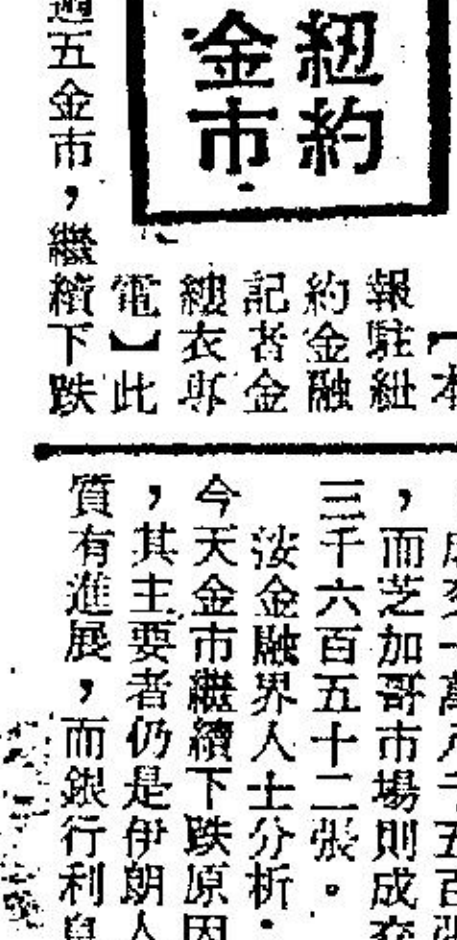 紐約
金市
【本
報駐紐
約金融
記者金
縷衣專
電】此
週五金市，繼續下跌
，而芝加哥市場則成交
三千六百五十二張。
按金融界人士分析，
今天金市繼續下跌原因
，其主要者仍是伊朗人
質有進展，而銀行利息